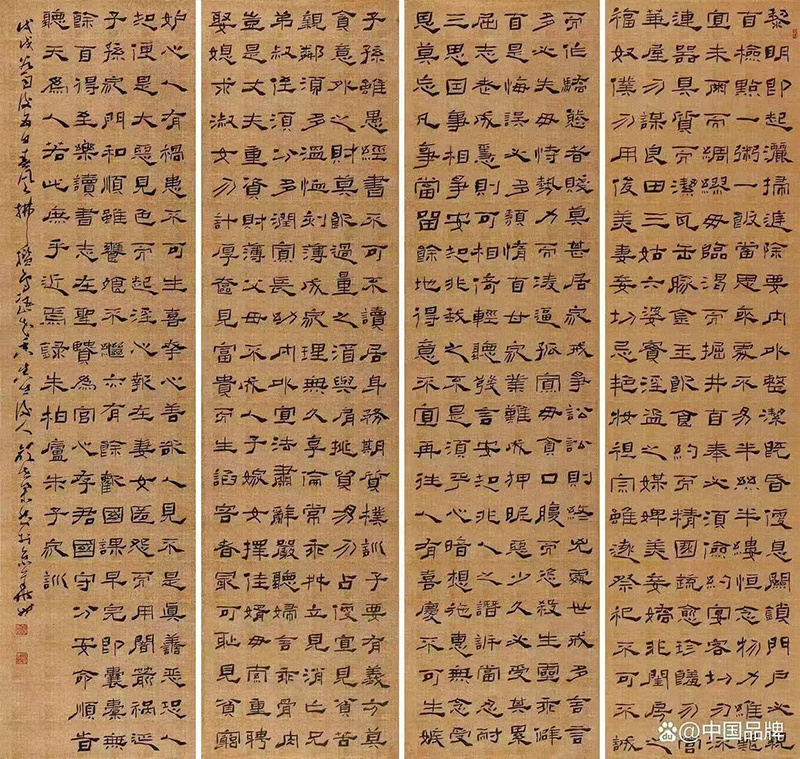 黎明即起灑掃庭除要內外整潔既昏便息關鎖門戶必親
百檢點一粥一飯當思來處不易半絲半縷恒念物力維艱
宜未雨而綢繆毋臨渴而掘井自奉必須儉約宴客切勿流
連器具質而潔瓦缶勝金玉飲食約而精園蔬愈珍饈勿營
華屋勿謀良田三姑六婆實淫盜之媒婢美妾嬌非閨房之
福奴僕勿用俊美妻妾切忌艷妝祖宗雖遠祭祀不可不誠
子孫雖愚經書不可不讀居身務期質樸訓子要有義方莫
貪意外之財莫飲過量之酒與肩挑貿易勿占便宜見貧
親鄰須多溫恤刻薄成家理無久享倫常乖舛立見消亡兄
弟叔侄須分多潤寡長幼內外宜法肅辭嚴聽婦言乖骨肉
豈是丈夫重資財薄父母不成人子嫁女擇佳婿毋索重聘
娶媳求淑女勿計厚奩見富貴而生諂容者最可恥見貧窮
而作驕態者賤莫甚居家戒爭訟訟則終凶處世戒多言言
多必失毋恃勢力而凌逼孤寡毋貪口腹而恣殺生靈乖僻
自是悔誤必多頹惰自甘家業難成狎昵惡少久必受其累
屈志老成急則可相倚輕聽發言安知非人之譖訴當忍耐
三思因事相爭安知非我之不是須平心暗想施惠無念受
恩莫忘凡事當留餘地得意不宜再往人有喜慶不可生嫉
妒心人有禍患不可生喜幸心善欲人見不是真善惡恐人
知便是大惡見色而起淫心報在妻女匿怨而用暗箭禍延
子孫家門和順雖饔飧不繼亦有餘歡國課早完即囊橐無
餘自得至樂讀書志在聖賢為官心存君國守分安命順時
聽天為人若此無乎近焉錄朱柏廬朱子家訓
戊戌
中国品牌